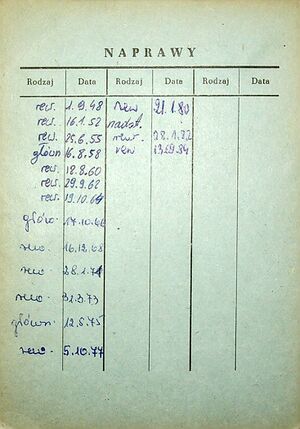 NAPRAWY
Rodzaj Data Rodzaj Data Rodzaj Data
rew. 1.9.48 rew 21.1.80
rew. 16.1.52 nadzt.
rew. 25.6.55 rew. 28.1.82
główn 16.8.58 rew
rew. 18.8.60
rew. 29.9.62
rew. 19.10.64
główn. 17.10.66
rew. 16.12.68
rew. 28.1.71
rew. 31.3.73
główn. 12.6.75
rew. 5.10.77